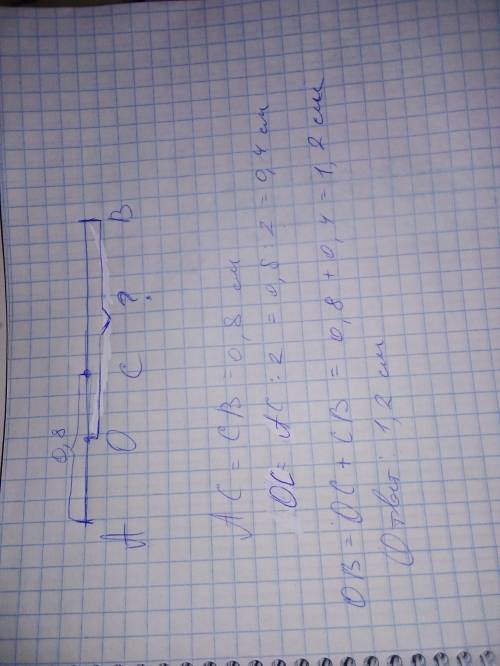 0,8
A O C ? B
AC = CB = 0,8 см
OC = AC : 2 = 0,8 : 2 = 0,4 см
OB = OC + CB = 0,8 + 0,4 = 1,2 см
Ответ: 1,2 см